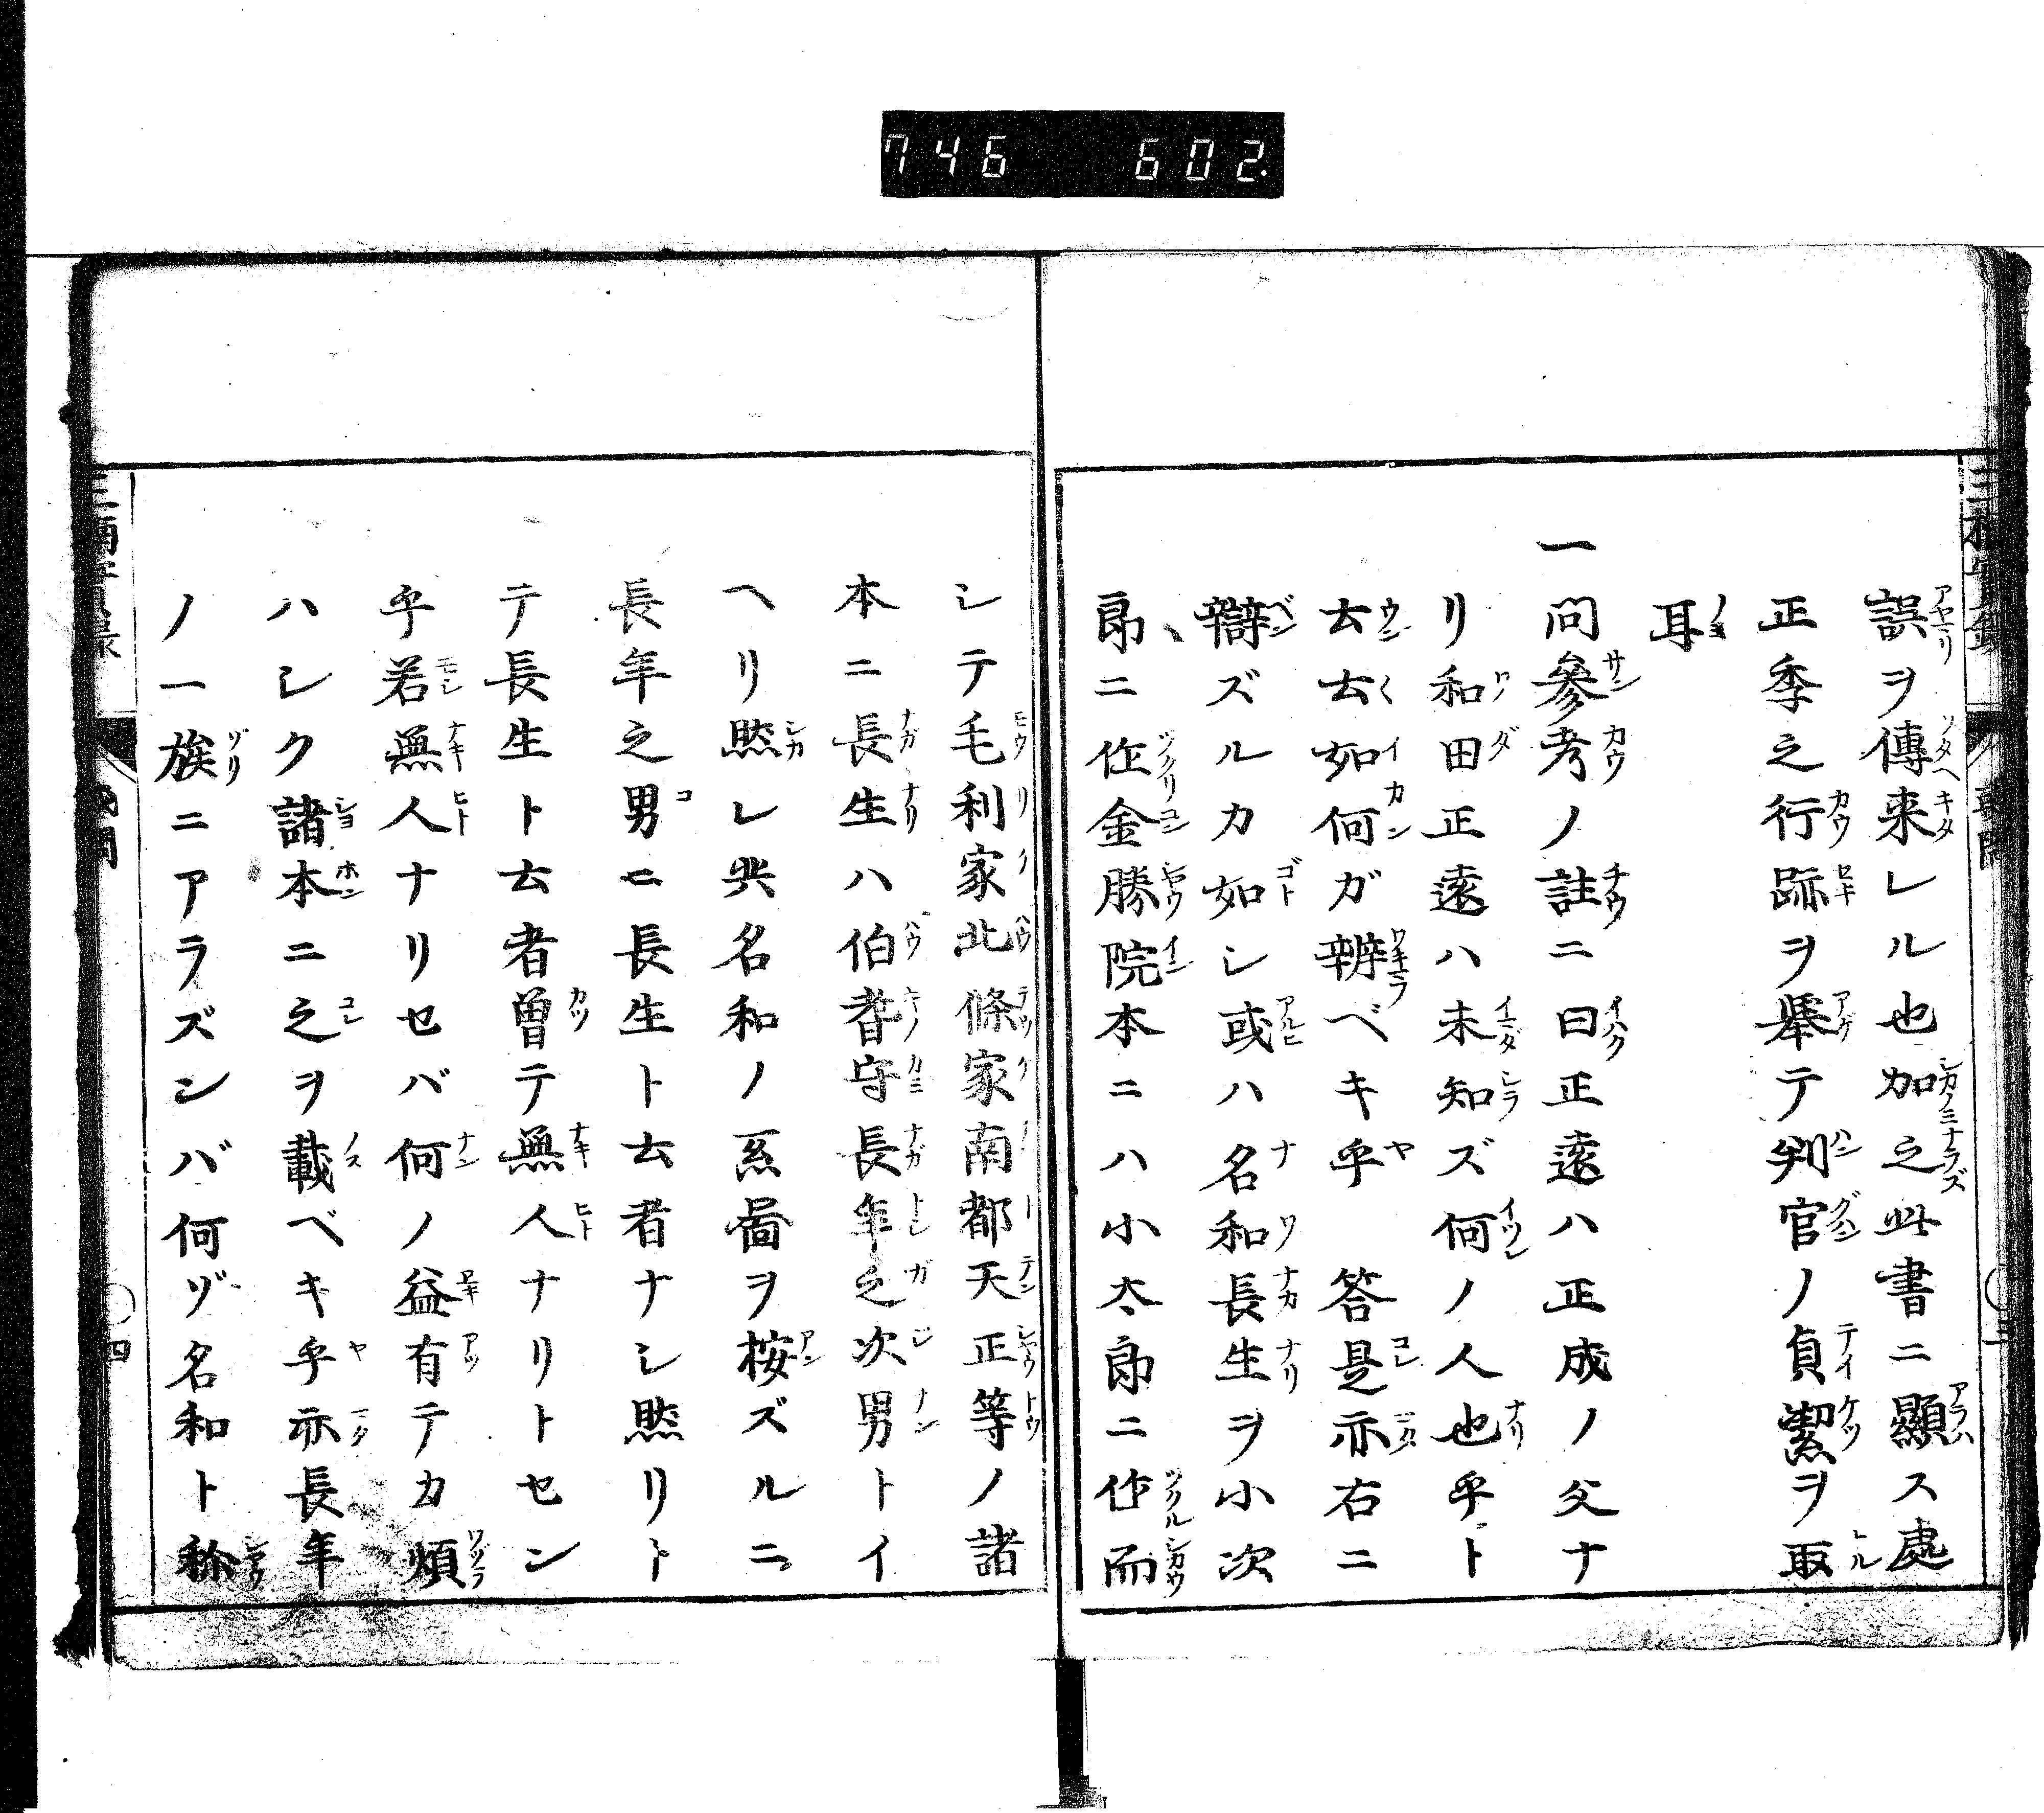 746 602.
誤ヲ傳来レル也加之此書ニ顯ス處
正季之行跡ヲ擧テ判官ノ貞潔ヲ取
耳
一問參考ノ註ニ曰正遠ハ正成ノ父ナ
リ和田正遠ハ未知ズ何ノ人也乎ト
云云如何ガ辨ベキ乎 答是亦右ニ
辯ズルカ如シ或ハ名和長生ヲ小次
郎ニ作金勝院本ニハ小太郎ニ作而
シテ毛利家北條家南都天正等ノ諸
本ニ長生ハ伯耆守長年之次男トイ
ヘリ然レ共名和ノ系圖ヲ按ズルニ
長年之男ニ長生ト云者ナシ然リト
テ長生ト云者曽テ無人ナリトセン
乎若無人ナリセバ何ノ益有テカ煩
ハシク諸本ニ之ヲ載ベキ乎亦長年
ノ一族ニアラズンバ何ゾ名和ト称
四